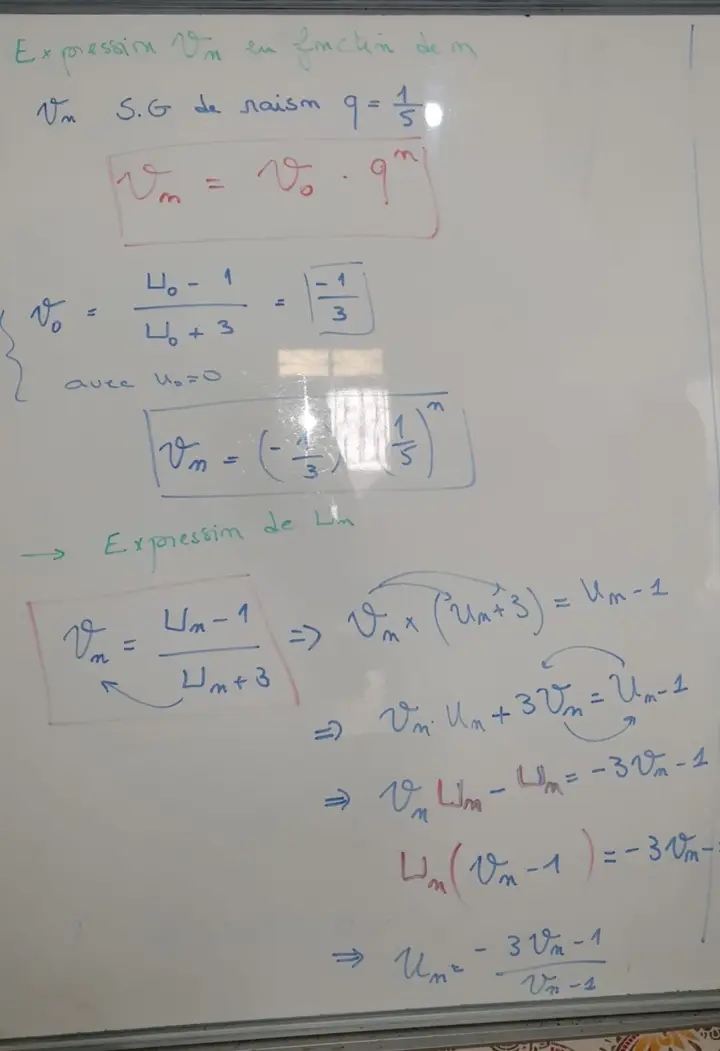 Expression Vn en fonction de n
Vn S.G de raison q = 1/5
Vn = V0 . q^n
V0 = (U0 - 1)/(U0 + 3) = -1/3
avec U0=0
Vn = (-1/3) (1/5)^n
→ Expression de Un
Vn = (Un - 1)/(Un + 3) => Vn × (Un + 3) = Un - 1
=> Vn . Un + 3Vn = Un - 1
=> Vn Un - Un = -3Vn - 1
Un (Vn - 1) = -3Vn -
=> Un = (-3Vn - 1)/(Vn - 1)